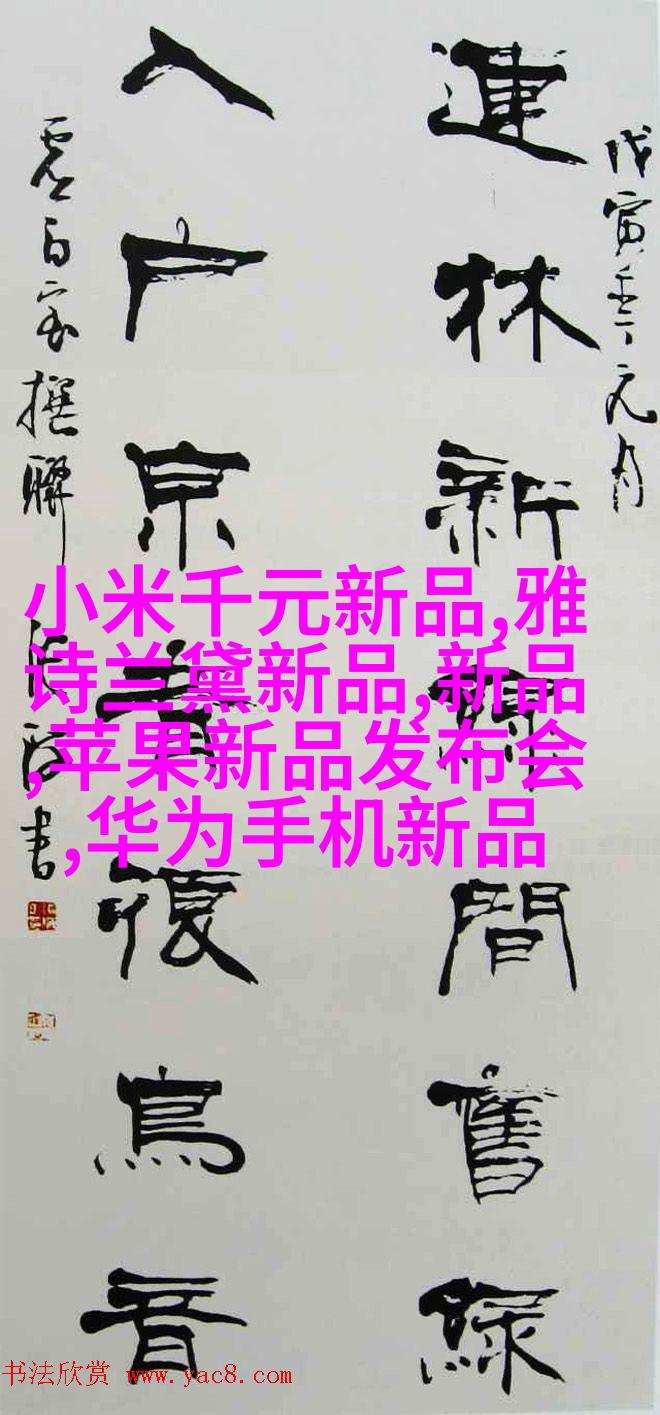 戊寅年元月
連林新
間舊綠
入户
鳥音
撰聯
書
小米千元新品,雅
诗兰黛新品,新品
,苹果新品发布会
,华为手机新品
书法欣赏 www.yac8.com